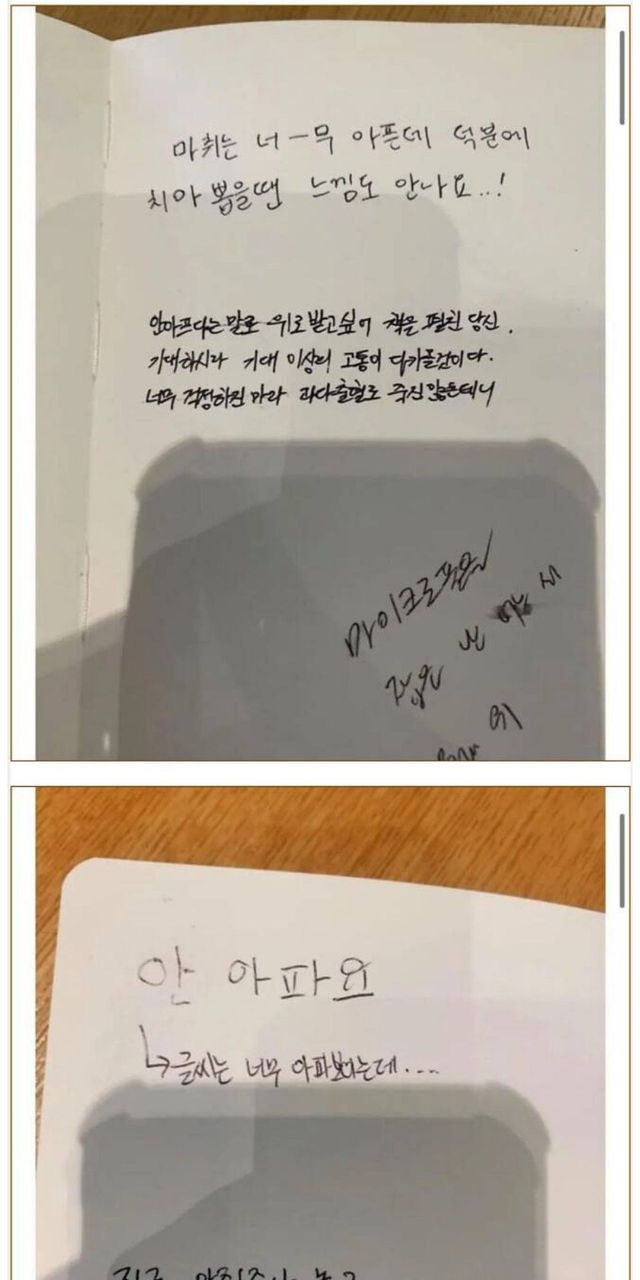 마취는 너-무 아픈데 덕분에
치아 뽑을땐 느낌도 안나요..!
안아프다는 말로 위로받고싶어 책을 펼친 당신.
기대하시라 기대 이상의 고통이 다가올것이다.
너무 걱정하진 마라 과다출혈로 죽진 않을테니
마이크로폰을
잡은 난
안 아파요
↳글씨는 너무 아파보이는데....
지금